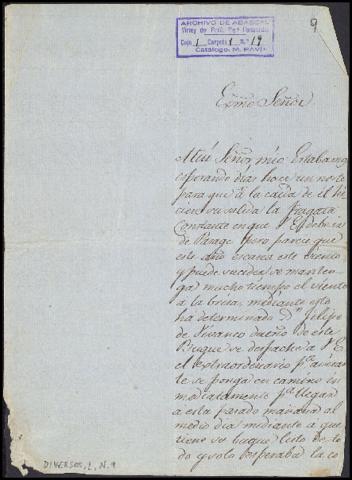 9
ARCHIVO DE ABASCAL
Virrey de Perú. Por Fernando
Caja 1 Carpeta 1 N.º 19
Catálogo: M. PAVÍ
Exmo Señor
Mui Señor mio Estabamos
esperando dias hace un norte
para que á la caida de el hi-
ciese su salida la Fragata
Constante en que V.E. deberia
de Pasage pero parece que
este año escasea este viento
y puede suceder se manten-
ga mucho tiempo el viento
a la brisa, mediante esto
ha determinado Dn Felipe
de Vivanco dueño de este
Buque se despache a V.E
el extraordinario pa
te se ponga en camino in-
mediatamente pa llegar
a esta pasado mañana al
medio dia mediante a que
tiene su buque listo de to-
do y solo esperaba la co
DIVERSOS, 1, N. 9